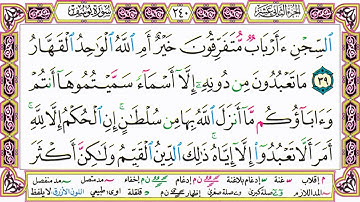 الجزء الثاني عشر ٢٤٠ سورة يوسف
ٱلسِّجْنِ ءَأَرْبَابٌ مُّتَفَرِّقُونَ خَيْرٌ أَمِ ٱللَّهُ ٱلْوَٰحِدُ ٱلْقَهَّارُ
٣٩ مَا تَعْبُدُونَ مِن دُونِهِۦٓ إِلَّآ أَسْمَآءً سَمَّيْتُمُوهَآ أَنتُمْ
وَءَابَآؤُكُم مَّآ أَنزَلَ ٱللَّهُ بِهَا مِن سُلْطَٰنٍ ۚ إِنِ ٱلْحُكْمُ إِلَّا لِلَّهِ ۚ
أَمَرَ أَلَّا تَعْبُدُوٓا۟ إِلَّآ إِيَّاهُ ۚ ذَٰلِكَ ٱلدِّينُ ٱلْقَيِّمُ وَلَٰكِنَّ أَكْثَرَ
إقلاب غنة إدغام بلاغنة إدغام إخفاء مد متصل مد منفصل
المد اللازم صلة كبرى وصلة صغرى إظهار قلقلة أوى، طبيعي اللون الأزرق لايلفظ